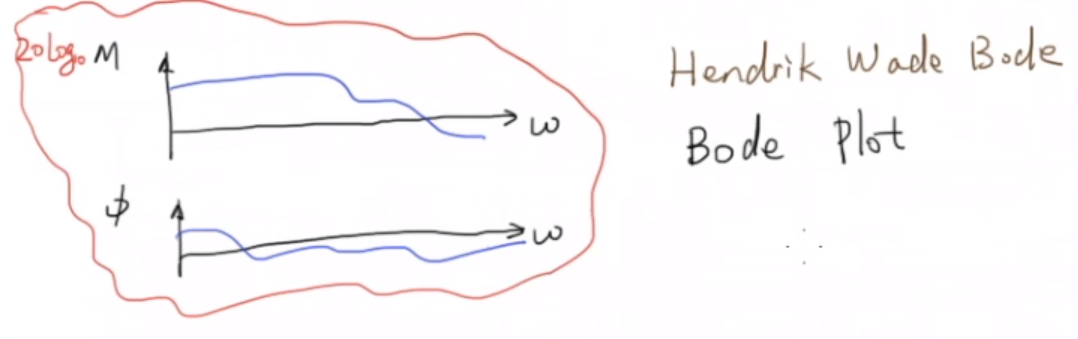 20log₁₀ M
ω
ϕ
ω
Hendrik Wade Bode
Bode Plot